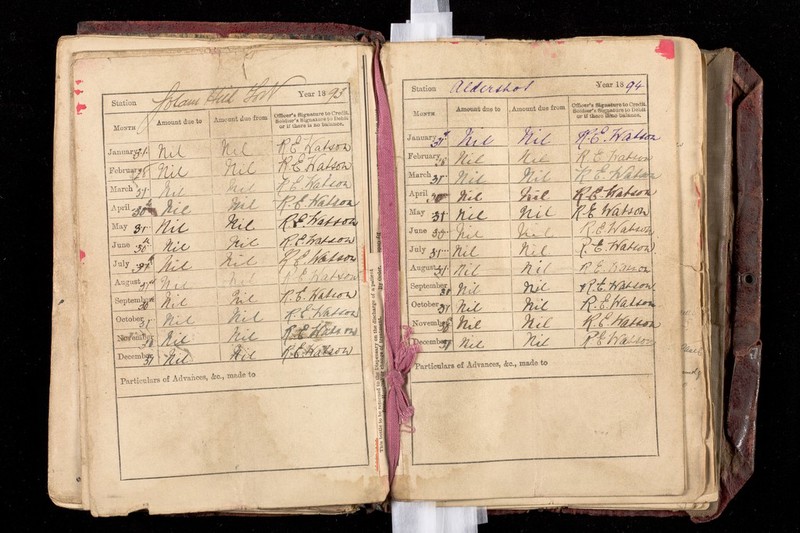 Station Year 1893
Month Amount due to Amount due from Officer's Signature to Credit. Soldier's Signature to Debit or if there is no balance.
January 31 Nil Nil R.E. Watson
February 28 Nil Nil R.E. Watson
March 31 Nil Nil R.E. Watson
April 30 Nil Nil R.E. Watson
May 31 Nil Nil R.E. Watson
June 30th Nil Nil R.E. Watson
July 31st Nil Nil R.E. Watson
August 31st Nil Nil R.E. Watson
September 30 Nil Nil R.E. Watson
October 31 Nil Nil R.E. Watson
November 30 Nil Nil R.E. Watson
December 31 Nil Nil R.E. Watson
Particulars of Advances, &c., made to
on the discharge of a patient
Station Aldershot Year 1894
Month Amount due to Amount due from Officer's Signature to Credit. Soldier's Signature to Debit or if there is no balance.
January 31st Nil Nil R.E. Watson
February 28 Nil Nil R.E. Watson
March 31 Nil Nil R.E. Watson
April 30 Nil Nil R.E. Watson
May 31 Nil Nil R.E. Watson
June 30 Nil Nil R.E. Watson
July 31 Nil Nil R.E. Watson
August 31 Nil Nil R.E. Watson
September 30 Nil Nil R.E. Watson
October 31 Nil Nil R.E. Watson
November 30 Nil Nil R.E. Watson
December 31 Nil Nil R.E. Watson
Particulars of Advances, &c., made to